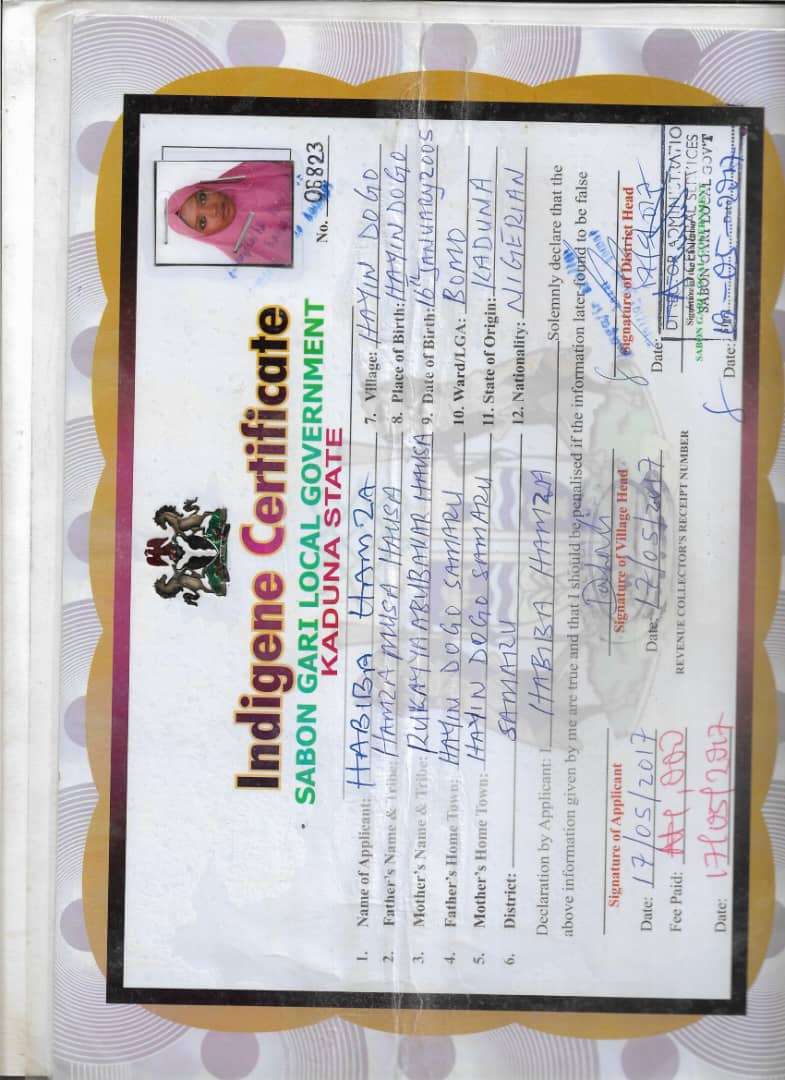 No. 06823
Indigene Certificate
SABON GARI LOCAL GOVERNMENT
KADUNA STATE
1. Name of Applicant: HABIBA HAMZA 7. Village: HAYIN DOGO
2. Father's Name & Tribe: HAMZA MUSA HAUSA 8. Place of Birth: HAYIN DOGO
3. Mother's Name & Tribe: RUKAYYA ABUBAKAR HAUSA 9. Date of Birth: 16th JANUARY 2005
4. Father's Home Town: HAYIN DOGO SAMARU 10. Ward/LGA: BOMO
5. Mother's Home Town: HAYIN DOGO SAMARU 11. State of Origin: KADUNA
6. District: SAMARU 12. Nationality: NIGERIAN
Declaration by Applicant: I HABIBA HAMZA Solemnly declare that the
above information given by me are true and that I should be penalised if the information later found to be false
Signature of Applicant Signature of Village Head Signature of District Head
Date: 17/05/2017 Date: 17/05/2017 Date:
Fee Paid: REVENUE COLLECTOR'S RECEIPT NUMBER
SABON GARI LOCAL GOVERNMENT
Date: 17/05/2017 Date: